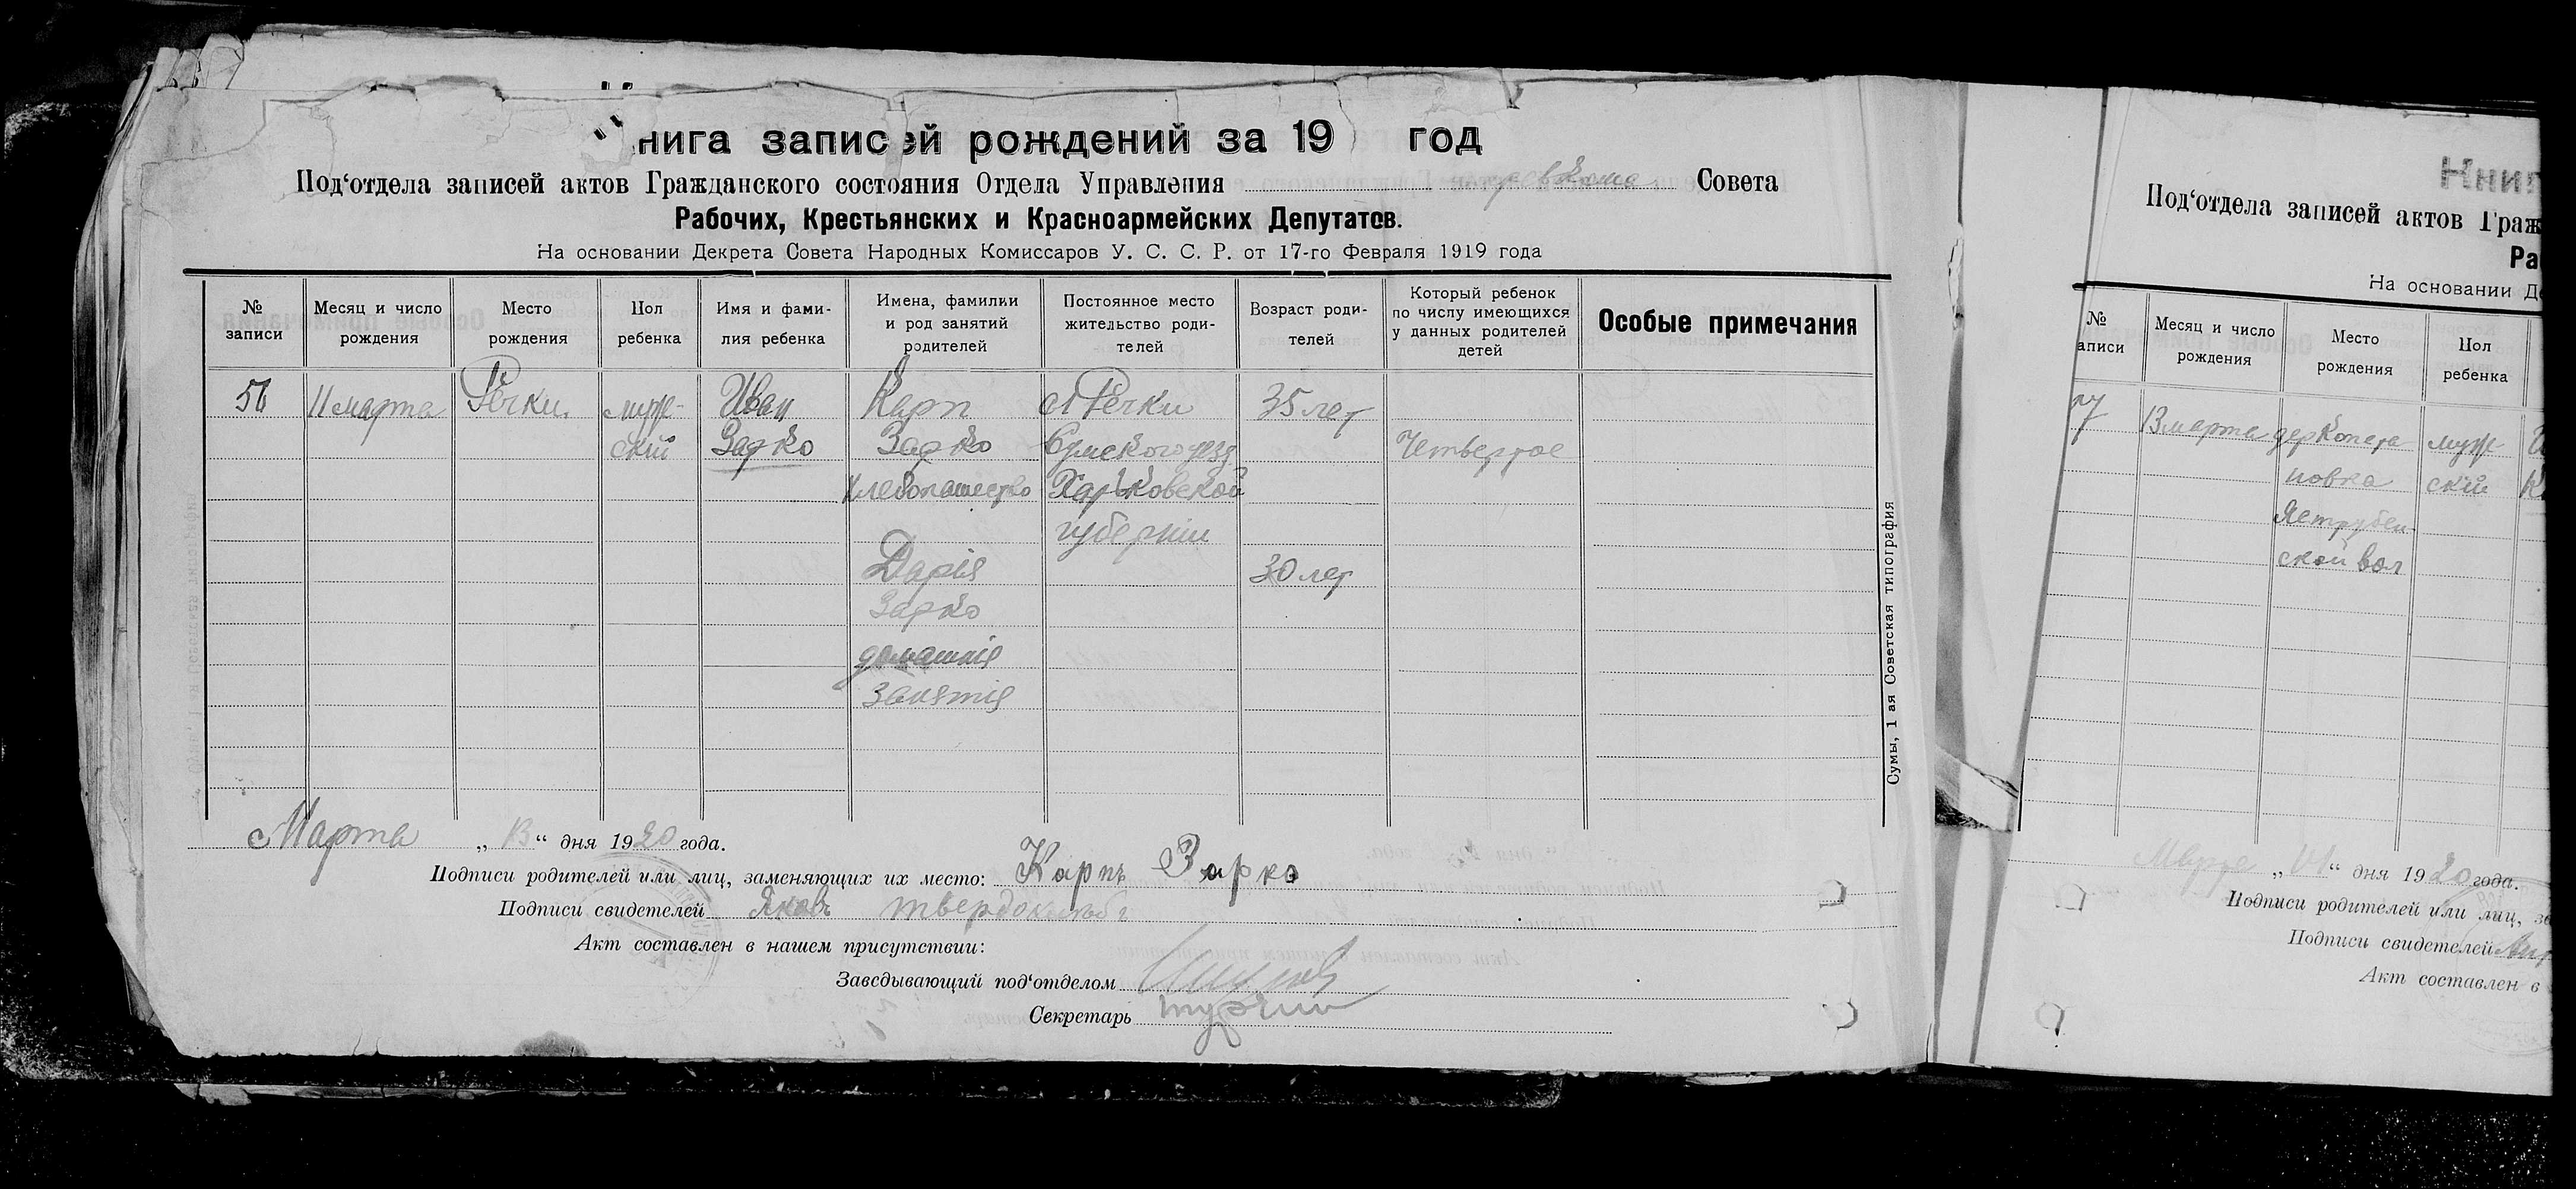 нига записей рождений за 19 год
Под‘отдела записей актов Гражданского состояния Отдела Управления ревкома Совета
Рабочих, Крестьянских и Красноармейских Депутатов.
На основании Декрета Совета Народных Комиссаров У. С. С. Р. от 17-го Февраля 1919 года
№ записи
Месяц и число рождения
Место рождения
Пол ребенка
Имя и фамилия ребенка
Имена, фамилии и род занятий родителей
Постоянное место жительство родителей
Возраст родителей
Который ребенок по числу имеющихся у данных родителей детей
Особые примечания
56 11 марта Речки. муж- Иван Карп с Речки 35 лет
скій Зарко Зарко Сумского уезд Четвертое
хлебопашество Харьковской
губерніи
Дарія 30 лет
Зарко
домашнія
занятія
Сумы, 1 ая Советская типография
Марта „13“ дня 1920 года.
Подписи родителей или лиц, заменяющих их место: Карпъ Зарко
Подписи свидетелей Яковъ
Акт составлен в нашем присутствии:
Заведывающий под‘отделом
Секретарь
Книг
Под‘отдела записей актов Граж
Ра
На основании Де
№ записи
Месяц и число рождения
Место рождения
Пол ребенка
7 13 марта дер Копата муж-
новка скій
Яструбен-
ской вол
Марта „ “ дня 1920 года.
Подписи родителей или лиц, за
Подписи свидетелей
Акт составлен в